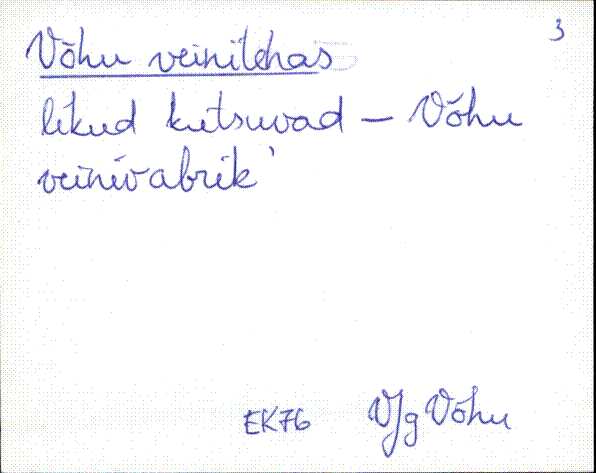 3
Võhu veinitehas
likud kutsuvad – Võhu
veinivabrik'
EK76 VJg Võhu